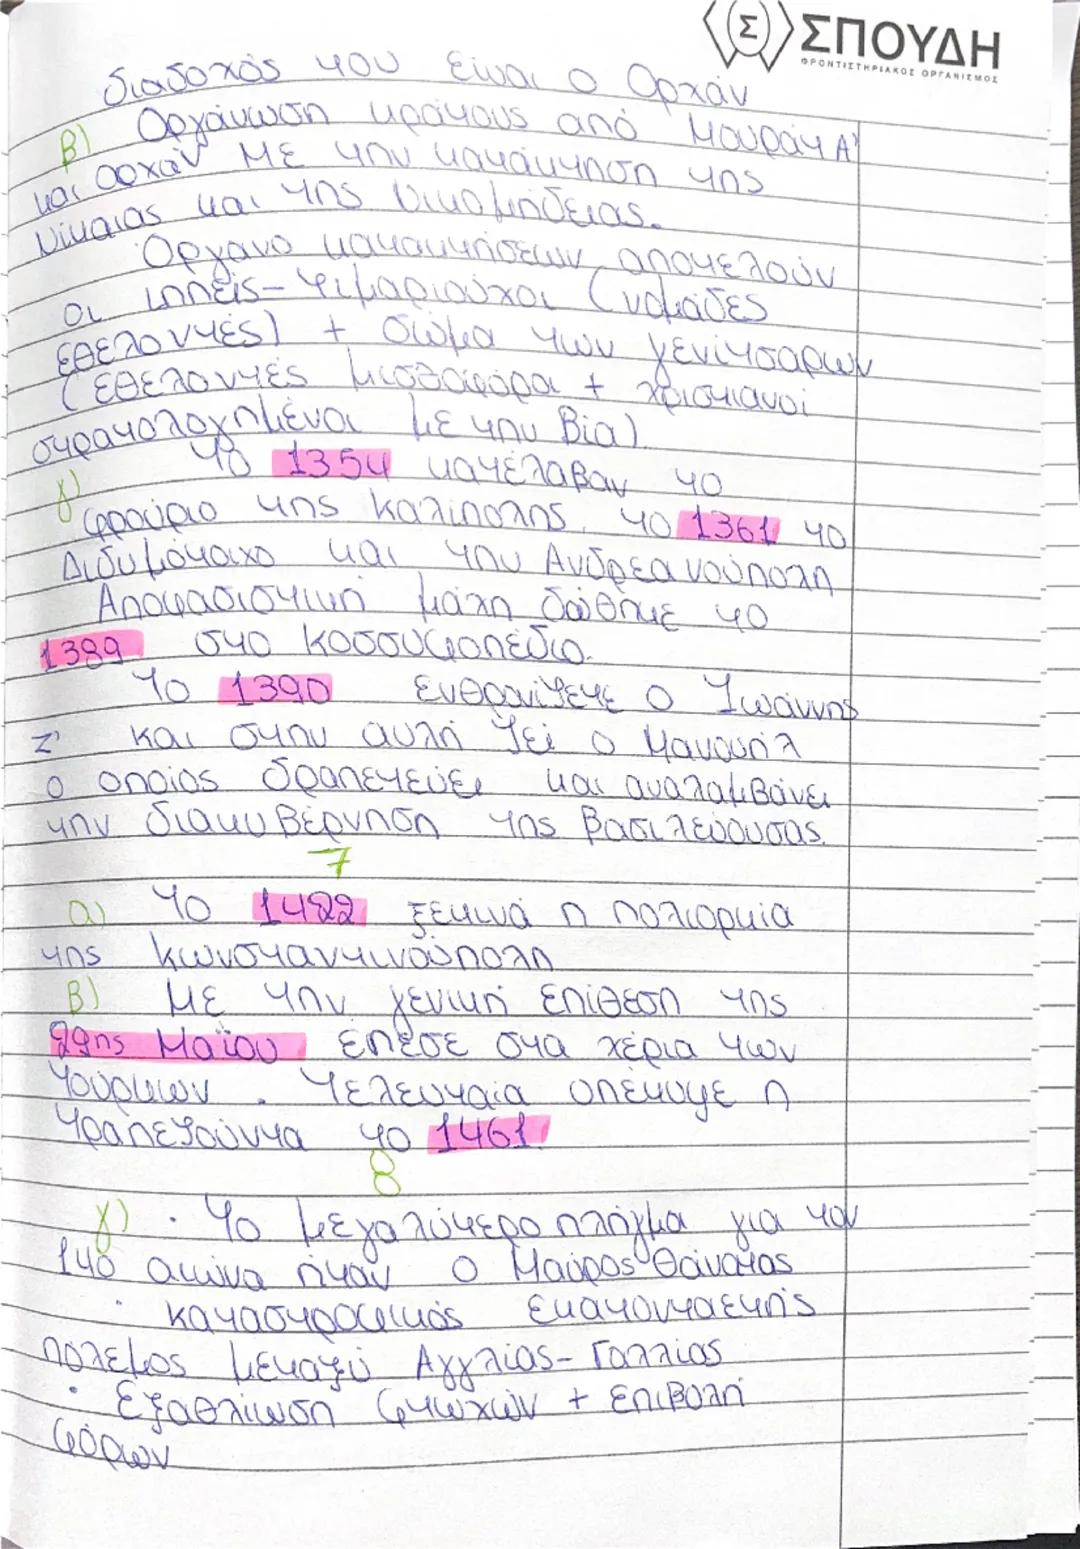 Σ ΣΠΟΥΔΗ
ΦΡΟΝΤΙΣΤΗΡΙΑΚΟΣ ΟΡΓΑΝΙΣΜΟΣ
διαδοχός του είναι ο Ορχάν
β) Οργάνωση κράτους από Μουράτ Α'
και Ορχάν με την κατάκτηση της
Νίκαιας και της Νικομήδειας.
Όργανο κατακτήσεων αποτελούν
οι ιππείς-τιμαριούχοι (νομάδες
εθελοντές) + σώμα των γενίτσαρων
(εθελοντές μισθοφόροι + χριστιανοί
στρατολογημένοι με την βία).
γ) Το 1354 κατέλαβαν το
φρούριο της Καλίπολης, το 1361 το
Διδυμότοιχο και την Ανδρεανούπολη
Αποφασιστική μάχη δώθηκε το
1389 στο Κοσσυφοπέδιο.
Το 1390 ενθρονίζετε ο Ιωάννης
Ζ' και στην αυλή ζει ο Μανουήλ
ο οποίος δραπετεύει και αναλαμβάνει
την διακυβέρνηση της βασιλεύουσας.
7
α) Το 1422 ξεκινά η πολιορκία
της Κωνσταντινούπολη
β) Με την γενική επίθεση της
29ης Μαΐου έπεσε στα χέρια των
Τούρκων. Τελευταία υπέκυψε η
Τραπεζούντα το 1461.
8
γ) · Το μεγαλύτερο πλήγμα για τον
14ο αιώνα ήταν ο Μαύρος Θάνατος
· καταστροφικός εκατονταετής
πόλεμος μεταξύ Αγγλίας-Γαλλίας
· Εξαθλίωση φτωχών + επιβολή
φόρων